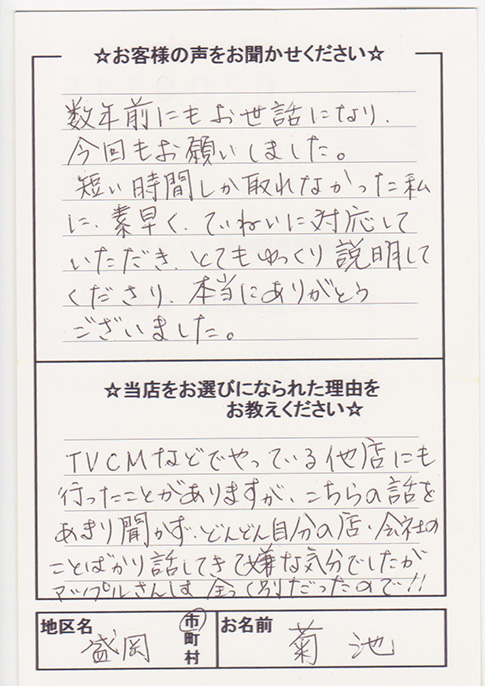 ☆お客様の声をお聞かせください☆
数年前にもお世話になり、
今回もお願いしました。
短い時間しか取れなかった私
に、素早く、ていねいに対応して
いただき、とてもゆっくり説明して
くださり、本当にありがとう
ございました。
☆当店をお選びになられた理由を
お教えください☆
TVCMなどでやっている他店にも
行ったことがありますが、こちらの話を
あまり聞かず、どんどん自分の店・会社の
ことばかり話してきて嫌な気分でしたが
アップルさんは全く別だったので!!
地区名 盛岡 市町村 お名前 菊池